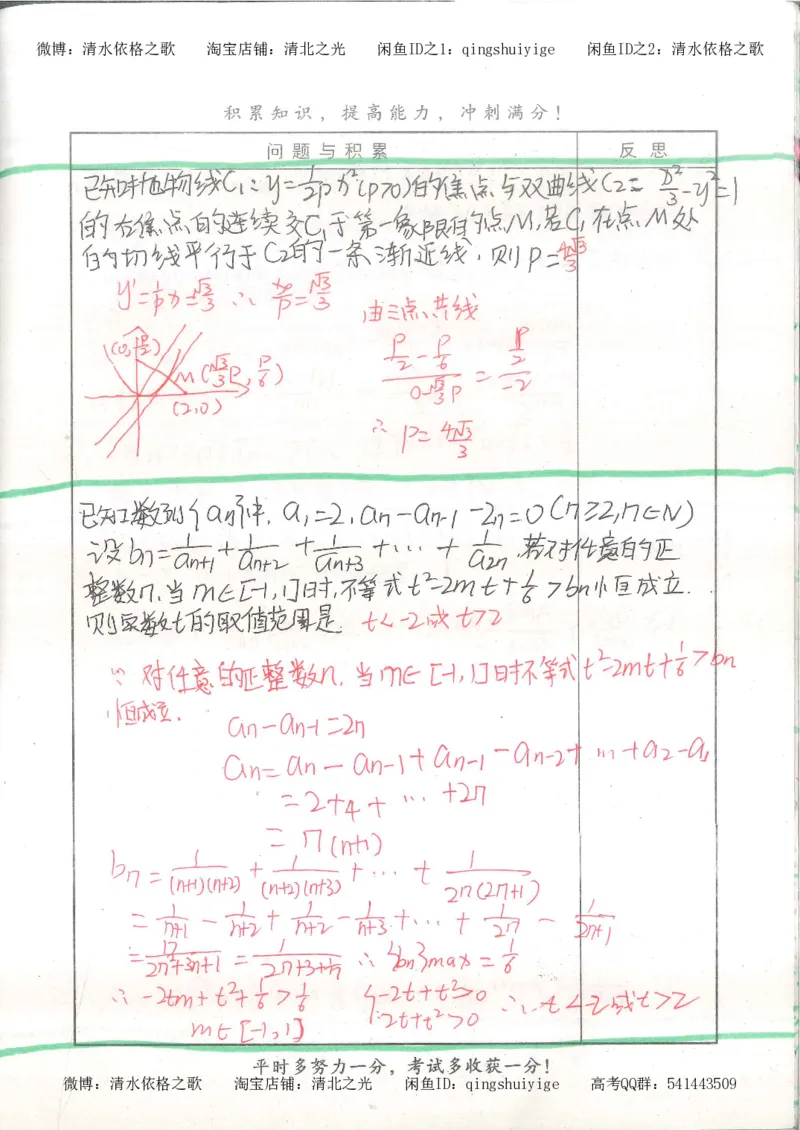 微博：清水依格之歌 淘宝店铺：清北之光 闲鱼ID之1：qingshuiyige 闲鱼ID之2：清水依格之歌
积累知识，提高能力，冲刺满分！
问题与积累 反思
已知抛物线C₁：y=1/2p x²(p>0)的焦点与双曲线C₂：x²/3-y²=1
的右焦点的连续交C₁于第一象限的点M，若C₁在点M处
的切线平行于C₂的一条渐近线，则p=4√3/3
y'=1/p x=±√3/3 ∴ x₀/p=√3/3
由三点共线
(0,p/2)
M(√3/3 p, p/6)
(2,0)
(p/2-p/6)/(0-√3/3 p)=(p/2)/-2
∴ p=4√3/3
已知数列{an}中，a₁=2，an-an-1-2n=0(n≥2,n∈N)
设bn=1/an+1+1/an+2+1/an+3+…+1/a2n，若对任意的正
整数n，当m∈[-1,1]时，不等式t²-2mt+1/6>bn恒成立．
则实数t的取值范围是 t<-2或t>2
∵ 对任意的正整数n．当m∈[-1,1]时不等式t²-2mt+1/6>bn
恒成立．
an-an-1=2n
an=an-an-1+an-1-an-2+…+a2-a1
=2+4+…+2n
=n(n+1)
bn=1/(n+1)(n+2)+1/(n+2)(n+3)+…+1/2n(2n+1)
=1/n+1-1/n+2+1/n+2-1/n+3+…+1/2n-1/2n+1
=n/2n²+3n+1=1/2n+3+1/n ∴ {bn}max=1/6
∴ -2tm+t²+1/6>1/6 {-2t+t²>0 ∴ t<-2或t>2
m∈[-1,1] 2t+t²>0
平时多努力一分，考试多收获一分！
微博：清水依格之歌 淘宝店铺：清北之光 闲鱼ID：qingshuiyige 高考QQ群：541443509